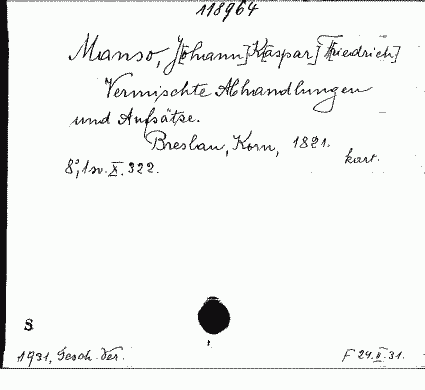 118964
Manso, J[ohann] K[aspar] F[riedrich]
Vermischte Abhandlungen
und Aufsätze.
Breslau, Korn, 1821.
kart.
8°, 1 sv. X. 322.
S
1931, Gesch. Ver.
F 24.II.31.